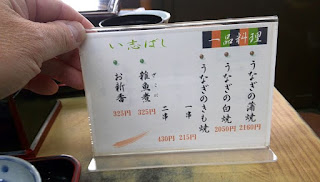 い志ばし
一品料理
うなぎの蒲焼 2160円
うなぎの白焼 2050円
うなぎのきも焼
一串 215円
二串 430円
雑魚煮 325円
お新香 325円